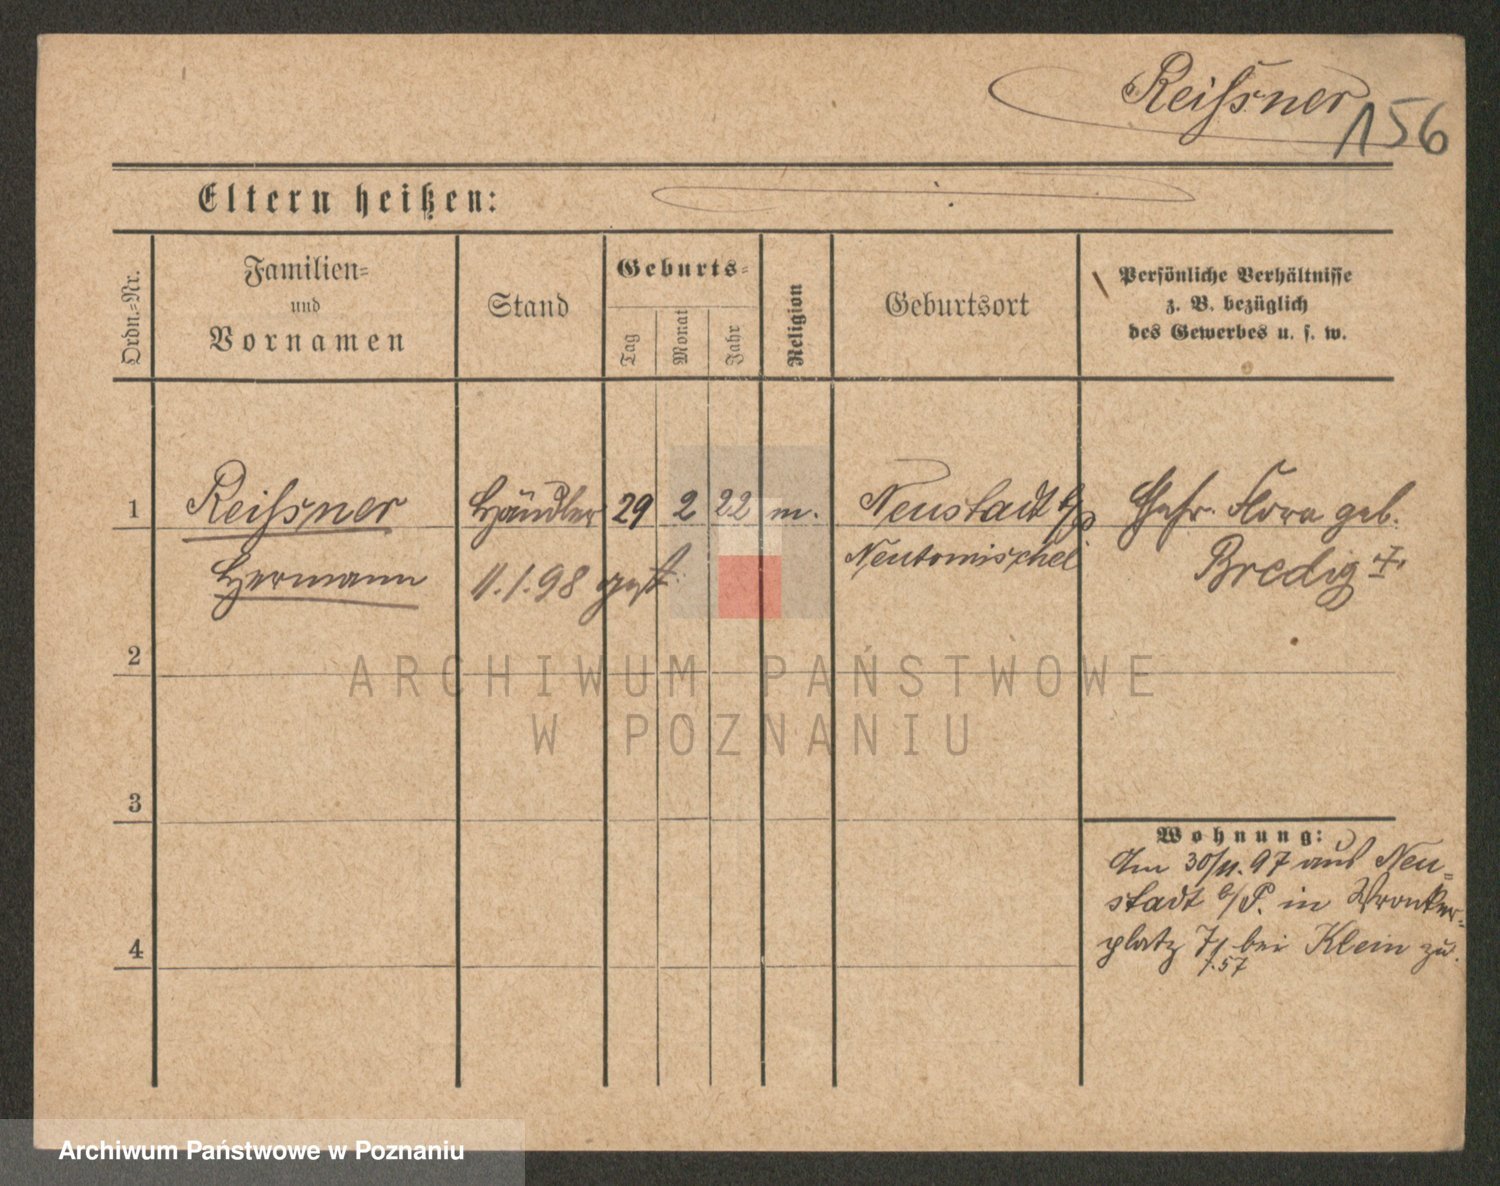 Reiſsner
156
Eltern heißen:
Ordn.-Nr.
Familien-
und
Vornamen
Stand
Geburts-
Tag
Monat
Jahr
Religion
Geburtsort
Persönliche Verhältnisse
z. B. bezüglich
des Gewerbes u. s. w.
1 Reiſsner Händler 29 2 22 m. Neustadt b/P Ehefr. Flora geb.
Hermann 11.1.98 gest. Neutomischel Bredig †
2
ARCHIWUM PAŃSTWOWE
W POZNANIU
3
Wohnung:
Am 30/11.97 aus Neu-
stadt b/P. in Wronker-
4
platz 7 bei Klein zu.
Archiwum Państwowe w Poznaniu